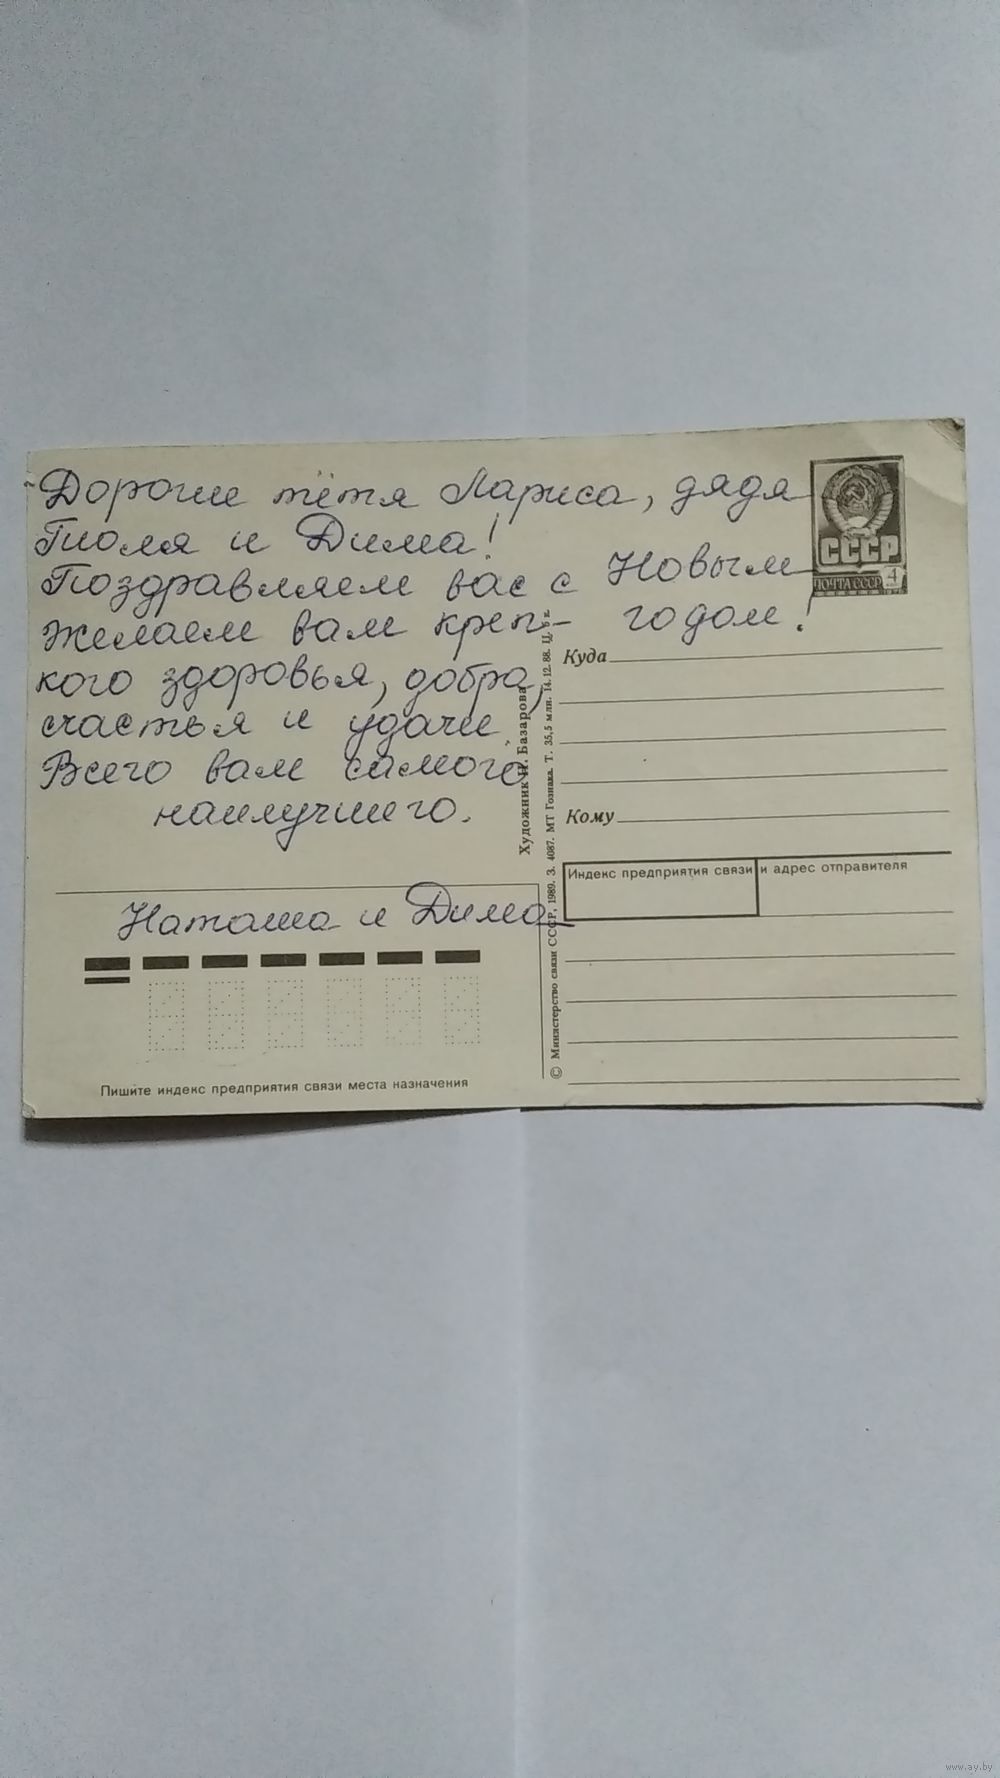 Дорогие тётя Лариса, дядя
Толя и Дима!
Поздравляем вас с Новым
годом!
Желаем вам креп-
кого здоровья, добра,
счастья и удачи.
Всего вам самого
наилучшего.
Наташа и Дима
СССР
ПОЧТА СССР 4
Куда
Кому
Индекс предприятия связи и адрес отправителя
Пишите индекс предприятия связи места назначения
Художник Н. Базарова
© Министерство связи СССР, 1989. З. 4087. МТ Гознака. Т. 35,5 млн. 14.12.88. Ц. 5 к.
www.ay.by